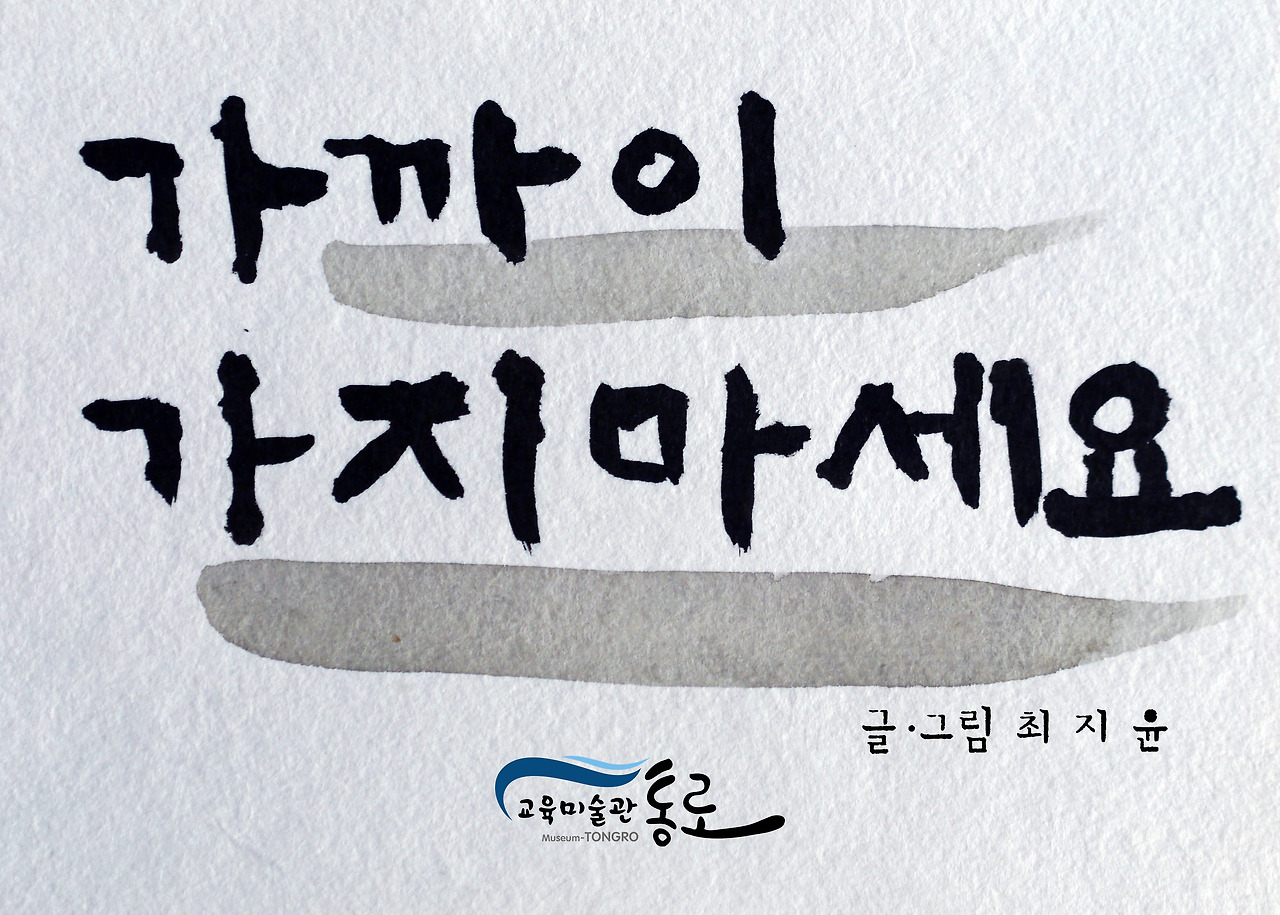 가까이
가지마세요
글·그림 최지윤
교육미술관 통로
Museum-TONGRO